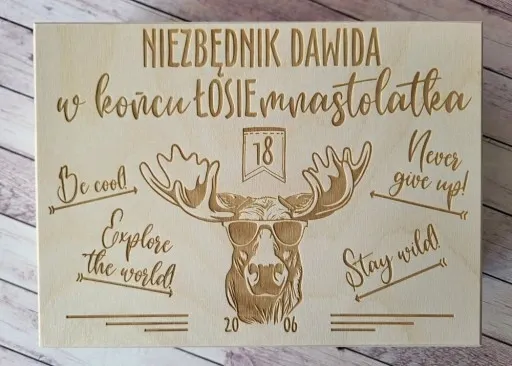 NIEZBĘDNIK DAWIDA
w końcu ŁOSIEmnastolatka
18
Be cool!
Never
give up!
Explore
the world!
Stay wild!
20 06